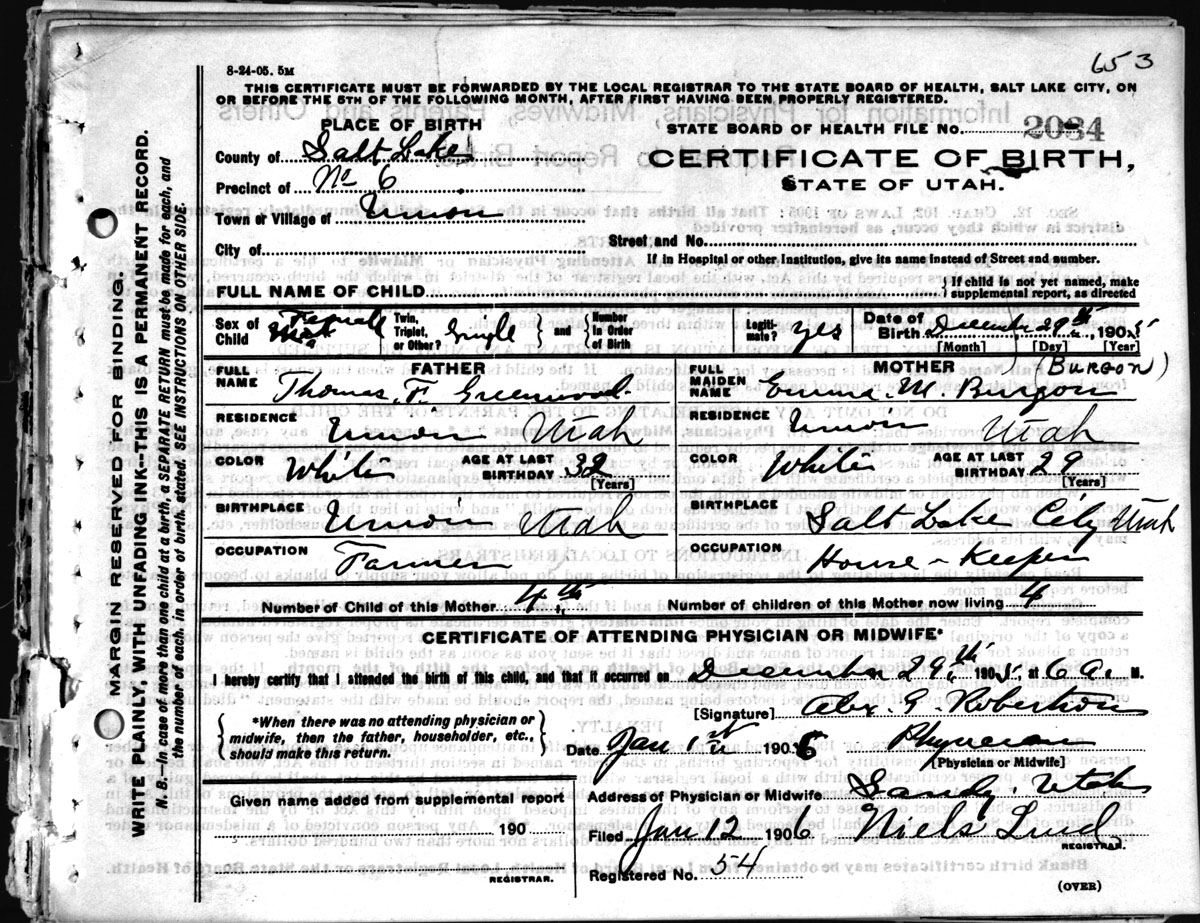 653
8-24-05. 5M
THIS CERTIFICATE MUST BE FORWARDED BY THE LOCAL REGISTRAR TO THE STATE BOARD OF HEALTH, SALT LAKE CITY, ON
OR BEFORE THE 5TH OF THE FOLLOWING MONTH, AFTER FIRST HAVING BEEN PROPERLY REGISTERED.
PLACE OF BIRTH
STATE BOARD OF HEALTH FILE No. 2084
County of Salt Lake
CERTIFICATE OF BIRTH,
STATE OF UTAH.
Precinct of No 6
Town or Village of Union
City of
Street and No.
If in Hospital or other Institution, give its name instead of Street and number.
FULL NAME OF CHILD
{If child is not yet named, make
supplemental report, as directed
Sex of Child Female
Twin, Triplet, or Other? Single } and { Number in Order of Birth
Legitimate? yes
Date of Birth December 29th 1905
[Month] [Day] [Year]
FATHER
MOTHER (BURGON)
FULL NAME Thomas. F. Greenwood
FULL MAIDEN NAME Emma. M. Burgon
RESIDENCE Union Utah
RESIDENCE Union Utah
COLOR White AGE AT LAST BIRTHDAY 32 [Years]
COLOR White AGE AT LAST BIRTHDAY 29 [Years]
BIRTHPLACE Union Utah
BIRTHPLACE Salt Lake City Utah
OCCUPATION Farmer
OCCUPATION House-Keeper
Number of Child of this Mother 4th
Number of children of this Mother now living 4
CERTIFICATE OF ATTENDING PHYSICIAN OR MIDWIFE*
I hereby certify that I attended the birth of this child, and that it occurred on December 29th, 1905, at 6 a. M.
{*When there was no attending physician or
midwife, then the father, householder, etc.,
should make this return.}
[Signature] Alex. G Robertson
Date Jan 1st 1906 Physician
[Physician or Midwife]
Given name added from supplemental report
190
REGISTRAR.
Address of Physician or Midwife Sandy. Utah
Filed Jan 12 1906 Niels Lind
REGISTRAR.
Registered No. 54
(OVER)
MARGIN RESERVED FOR BINDING.
WRITE PLAINLY, WITH UNFADING INK--THIS IS A PERMANENT RECORD.
N. B.--In case of more than one child at a birth, a SEPARATE RETURN must be made for each, and
the number of each, in order of birth, stated. SEE INSTRUCTIONS ON OTHER SIDE.